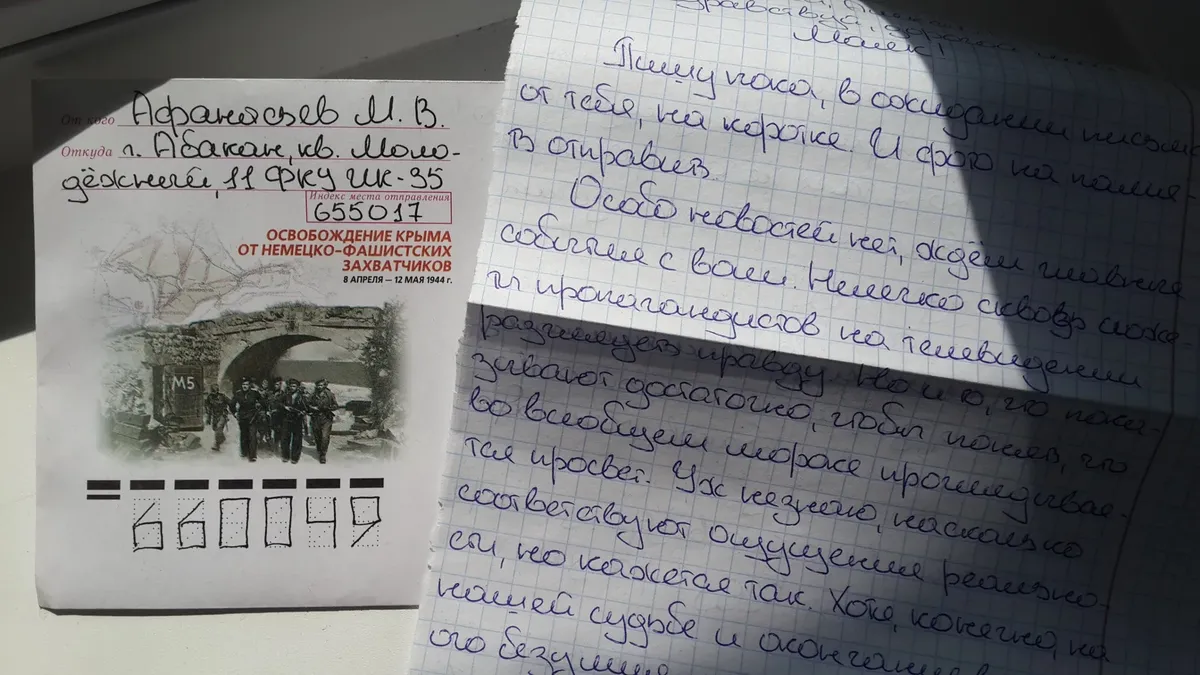 От кого Афанасьев М. В.
Откуда г. Абакан, кв. Моло-
дёжный, 11 ФКУ ИК-35
Индекс места отправления
655017
ОСВОБОЖДЕНИЕ КРЫМА
ОТ НЕМЕЦКО-ФАШИСТСКИХ
ЗАХВАТЧИКОВ
8 АПРЕЛЯ — 12 МАЯ 1944 г.
М5
660049
Здравствуй,
Пишу пока, в ожидании письма
от тебя, на коротке. И фото на памя-
ть отправив.
Особо новостей нет, ждём
события с воли. Нелегко сквозь
пропагандистов на телевидении
разглядеть правду. Но и то, что пока-
зывают достаточно, чтобы понять, что
во всеобщем мороке проглядывае-
тся просвет. Уж не знаю, насколько
соответствуют ощущения реально-
сти, но кажется так. Хотя, конечно, на
нашей судьбе и окончании
ого безумия